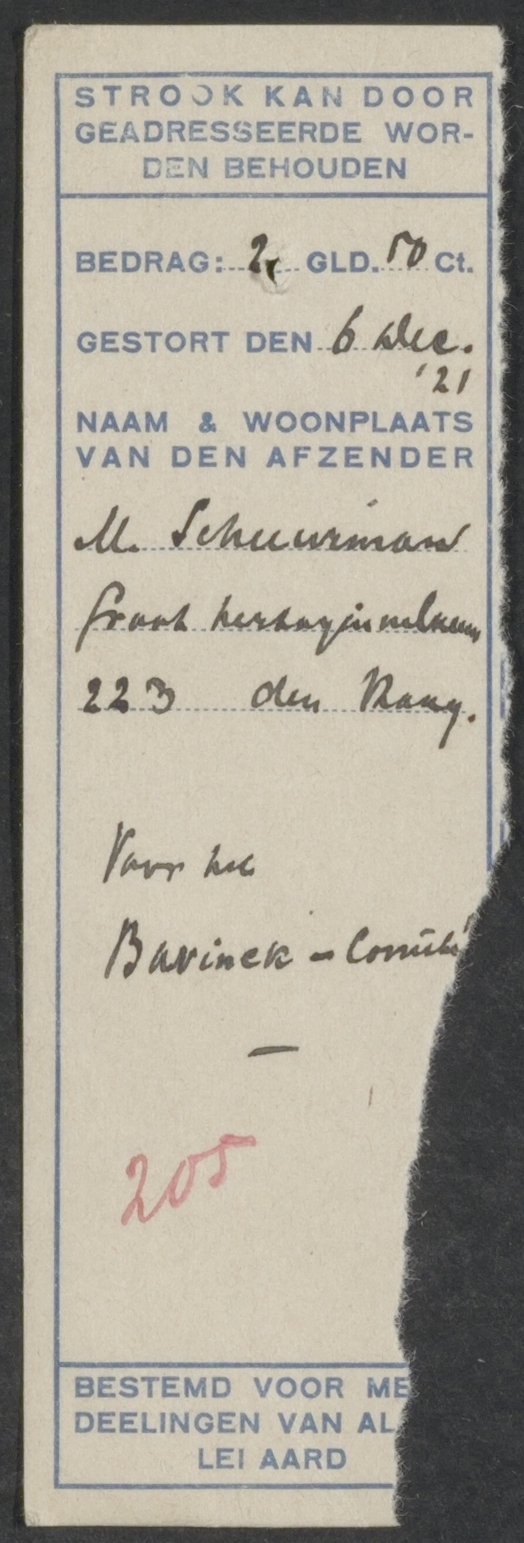 STROOK KAN DOOR
GEADRESSEERDE WOR-
DEN BEHOUDEN
BEDRAG: 2, GLD. 50 Ct.
GESTORT DEN 6 Dec.
'21
NAAM & WOONPLAATS
VAN DEN AFZENDER
M. Scheurman
groot hertoginnelaan
223 den Haag.
Voor het
Bavinck - Comité
205
BESTEMD VOOR ME
DEELINGEN VAN AL
LEI AARD